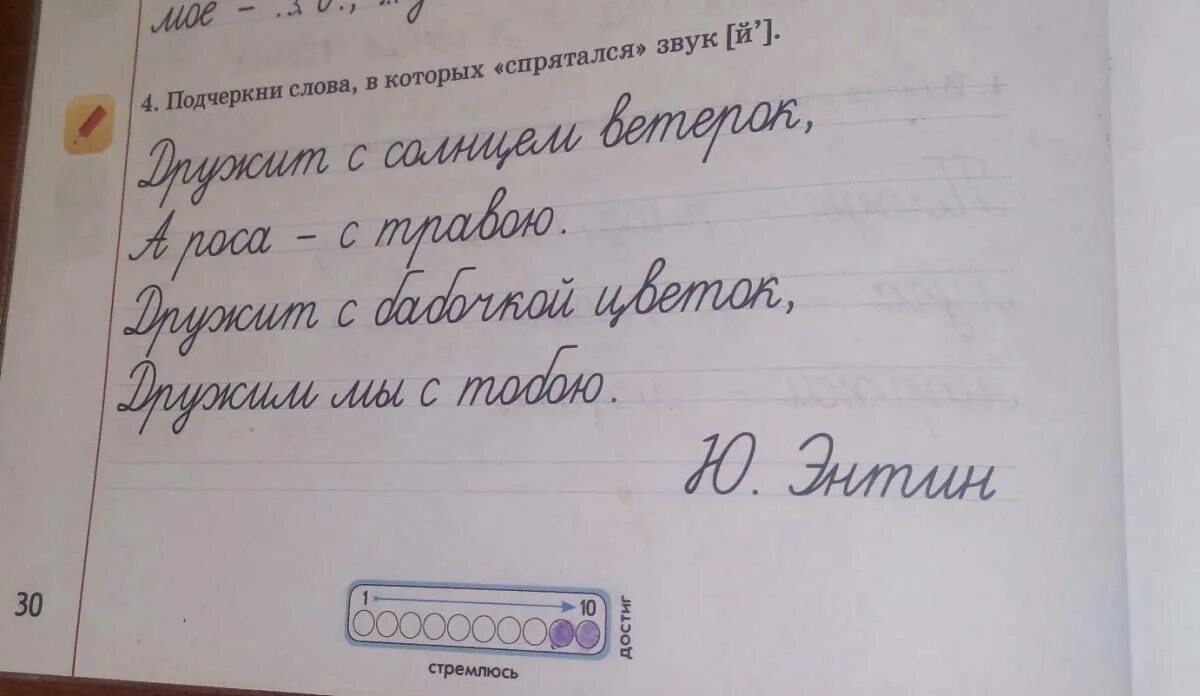 мое –
4. Подчеркни слова, в которых «спрятался» звук [й’].
Дружит с солнцем ветерок,
А роса – с травою.
Дружит с бабочкой цветок,
Дружим мы с тобою.
Ю. Энтин
30
1 10
достиг
стремлюсь